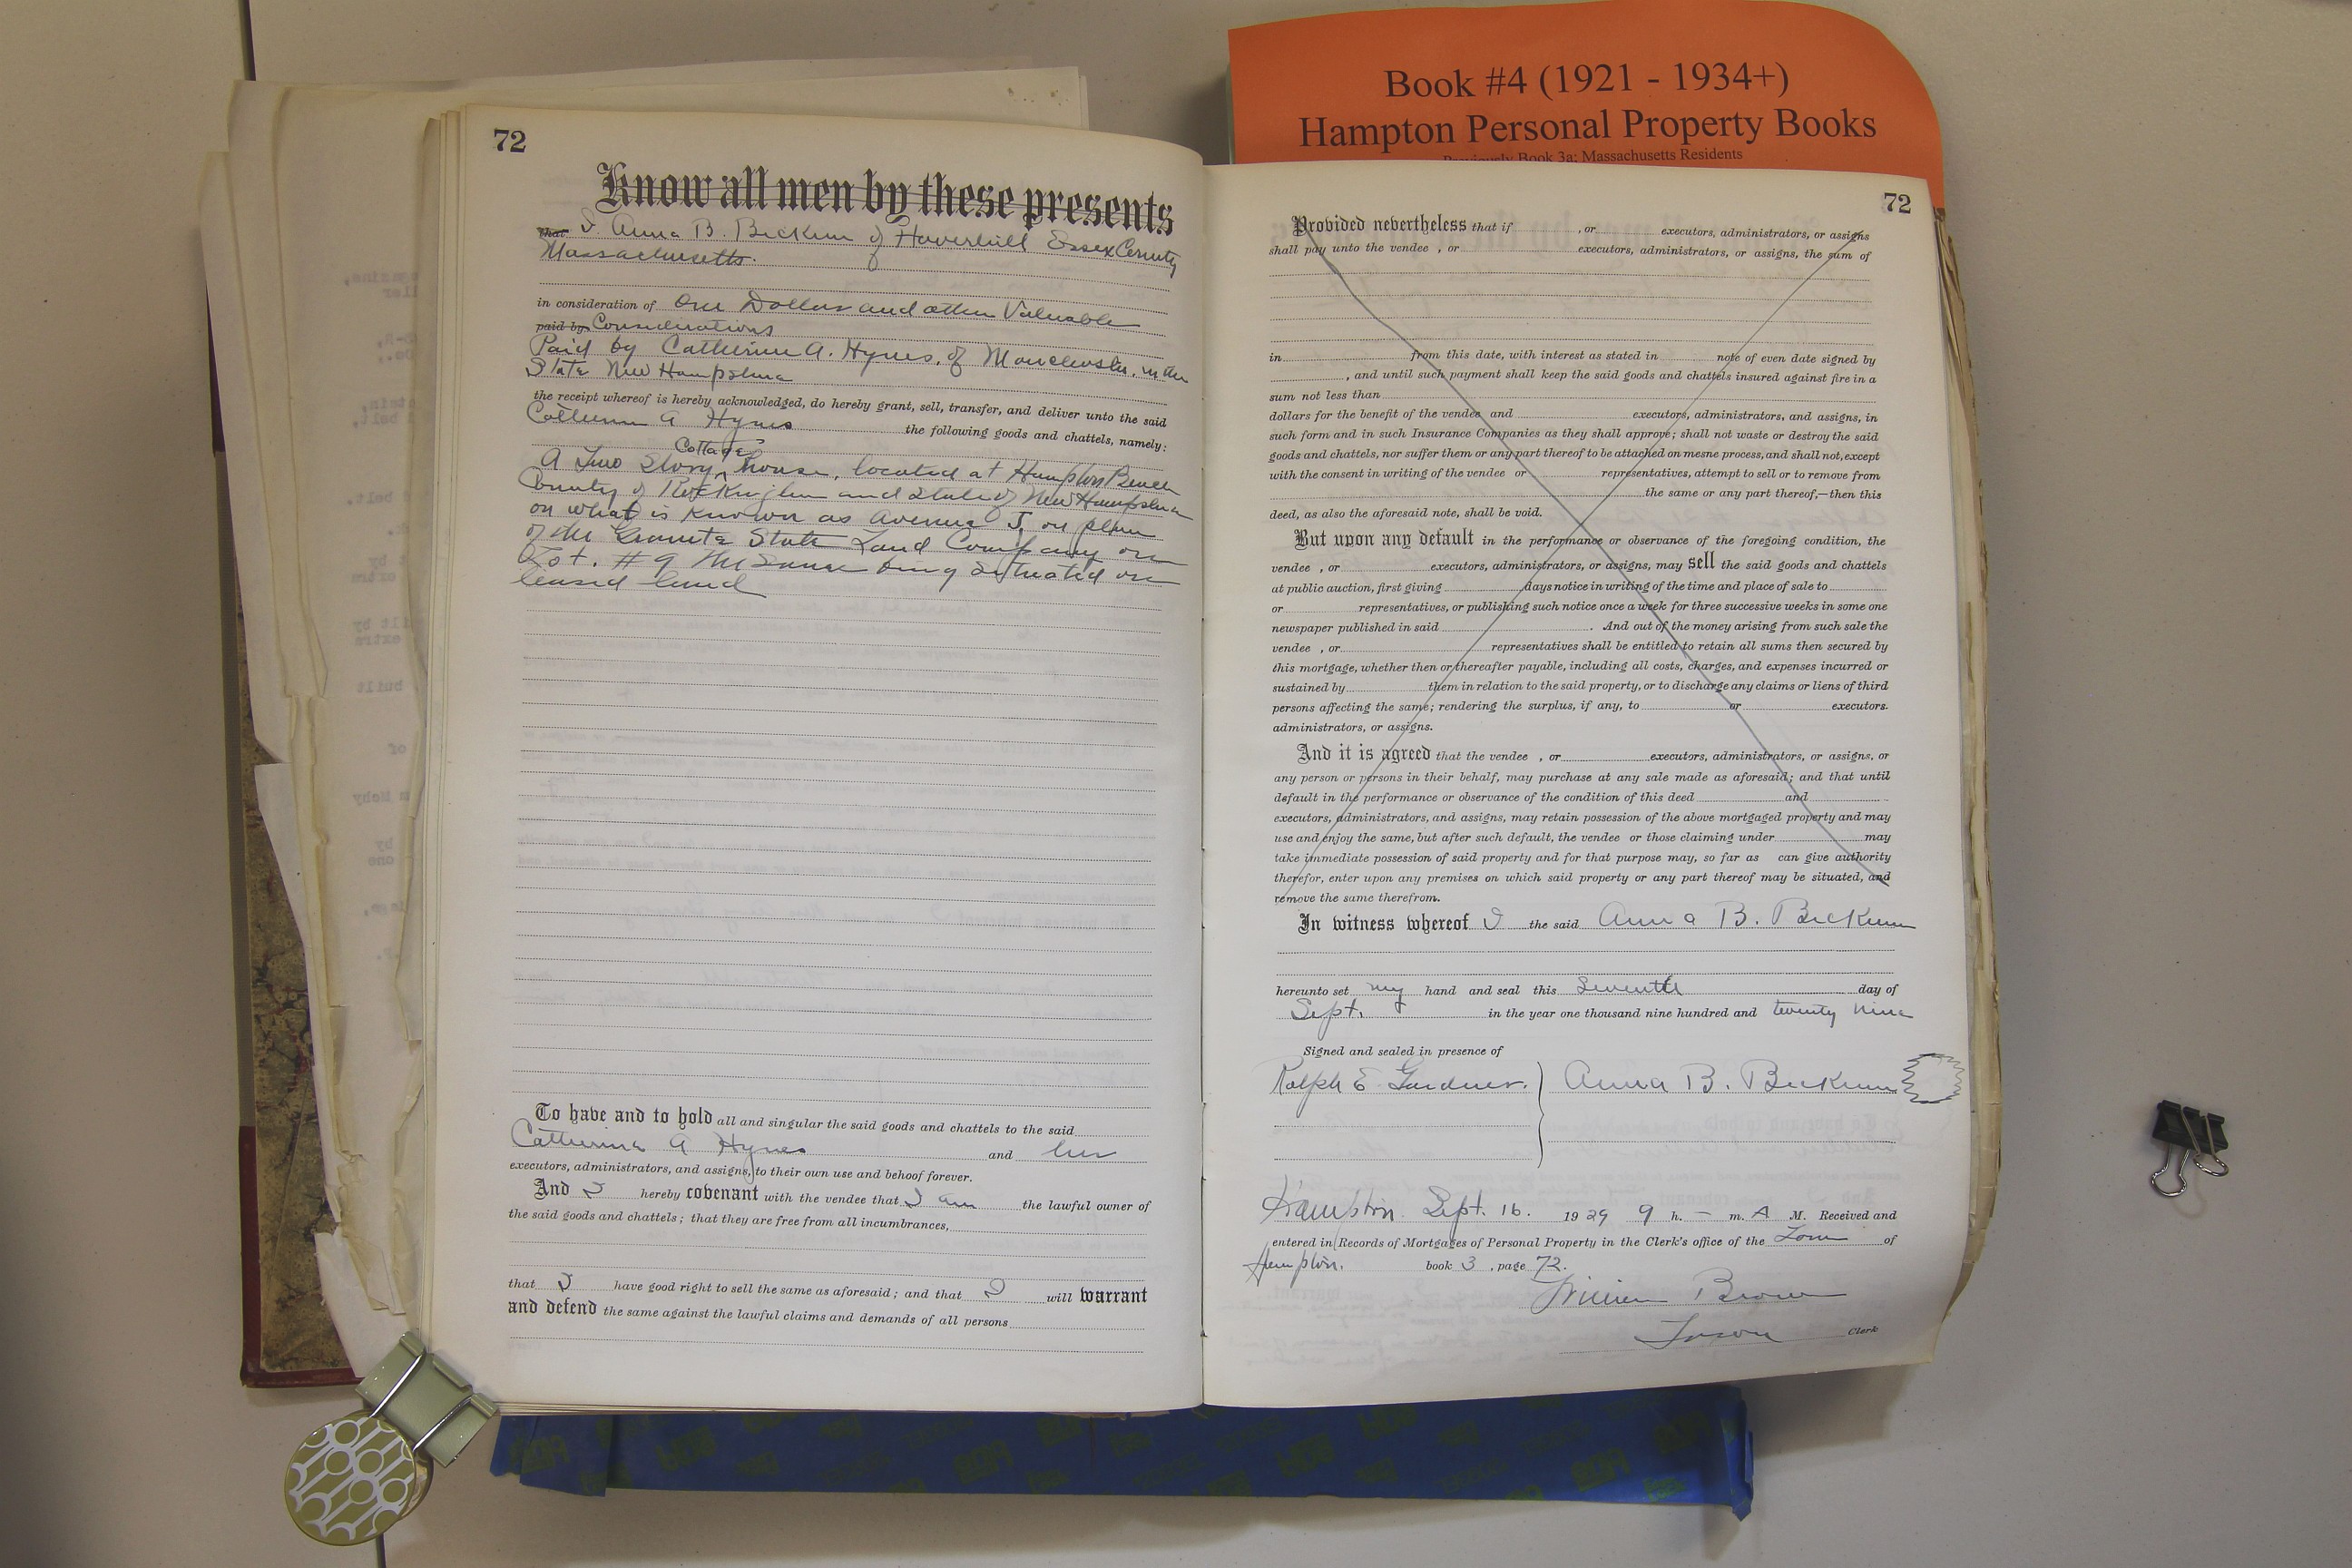 Book #4 (1921 - 1934+)
Hampton Personal Property Books
Previously Book 3a: Massachusetts Residents
72
Know all men by these presents
that I Anna B. Beckum of Haverhill Essex County
Massachusetts.
in consideration of One Dollar and other Valuable
paid by Considerations
Paid by Catherine A. Hynes, of Manchester, in the
State New Hampshire
the receipt whereof is hereby acknowledged, do hereby grant, sell, transfer, and deliver unto the said
Catherine A Hynes the following goods and chattels, namely:
Cottage
A Two Story house, located at Hampton Beach
County of Rockingham and State of New Hampshire
on what is known as Avenue J, on plan
of the Granite State Land Company on
Lot. #9 The Same being Situated on
leased land
To have and to hold all and singular the said goods and chattels to the said
Catherine A Hynes and her
executors, administrators, and assigns, to their own use and behoof forever.
And I hereby covenant with the vendee that I am the lawful owner of
the said goods and chattels; that they are free from all incumbrances,
that I have good right to sell the same as aforesaid; and that I will warrant
and defend the same against the lawful claims and demands of all persons
72
Provided nevertheless that if , or executors, administrators, or assigns
shall pay unto the vendee , or executors, administrators, or assigns, the sum of
in from this date, with interest as stated in note of even date signed by
, and until such payment shall keep the said goods and chattels insured against fire in a
sum not less than
dollars for the benefit of the vendee and executors, administrators, and assigns, in
such form and in such Insurance Companies as they shall approve; shall not waste or destroy the said
goods and chattels, nor suffer them or any part thereof to be attached on mesne process, and shall not, except
with the consent in writing of the vendee or representatives, attempt to sell or to remove from
the same or any part thereof,—then this
deed, as also the aforesaid note, shall be void.
But upon any default in the performance or observance of the foregoing condition, the
vendee , or executors, administrators, or assigns, may sell the said goods and chattels
at public auction, first giving days notice in writing of the time and place of sale to
or representatives, or publishing such notice once a week for three successive weeks in some one
newspaper published in said . And out of the money arising from such sale the
vendee , or representatives shall be entitled to retain all sums then secured by
this mortgage, whether then or thereafter payable, including all costs, charges, and expenses incurred or
sustained by them in relation to the said property, or to discharge any claims or liens of third
persons affecting the same; rendering the surplus, if any, to or executors.
administrators, or assigns.
And it is agreed that the vendee , or executors, administrators, or assigns, or
any person or persons in their behalf, may purchase at any sale made as aforesaid; and that until
default in the performance or observance of the condition of this deed and
executors, administrators, and assigns, may retain possession of the above mortgaged property and may
use and enjoy the same, but after such default, the vendee or those claiming under may
take immediate possession of said property and for that purpose may, so far as can give authority
therefor, enter upon any premises on which said property or any part thereof may be situated, and
remove the same therefrom.
In witness whereof I the said Anna B. Beckum
hereunto set my hand and seal this Seventh day of
Sept. in the year one thousand nine hundred and twenty nine
Signed and sealed in presence of
Ralph E Gardner. Anna B. Beckum
Hampton. Sept. 16. 1929 9 h. — m. A M. Received and
entered in Records of Mortgages of Personal Property in the Clerk's office of the Town of
Hampton. book 3 , page 72.
William Brown
Town Clerk